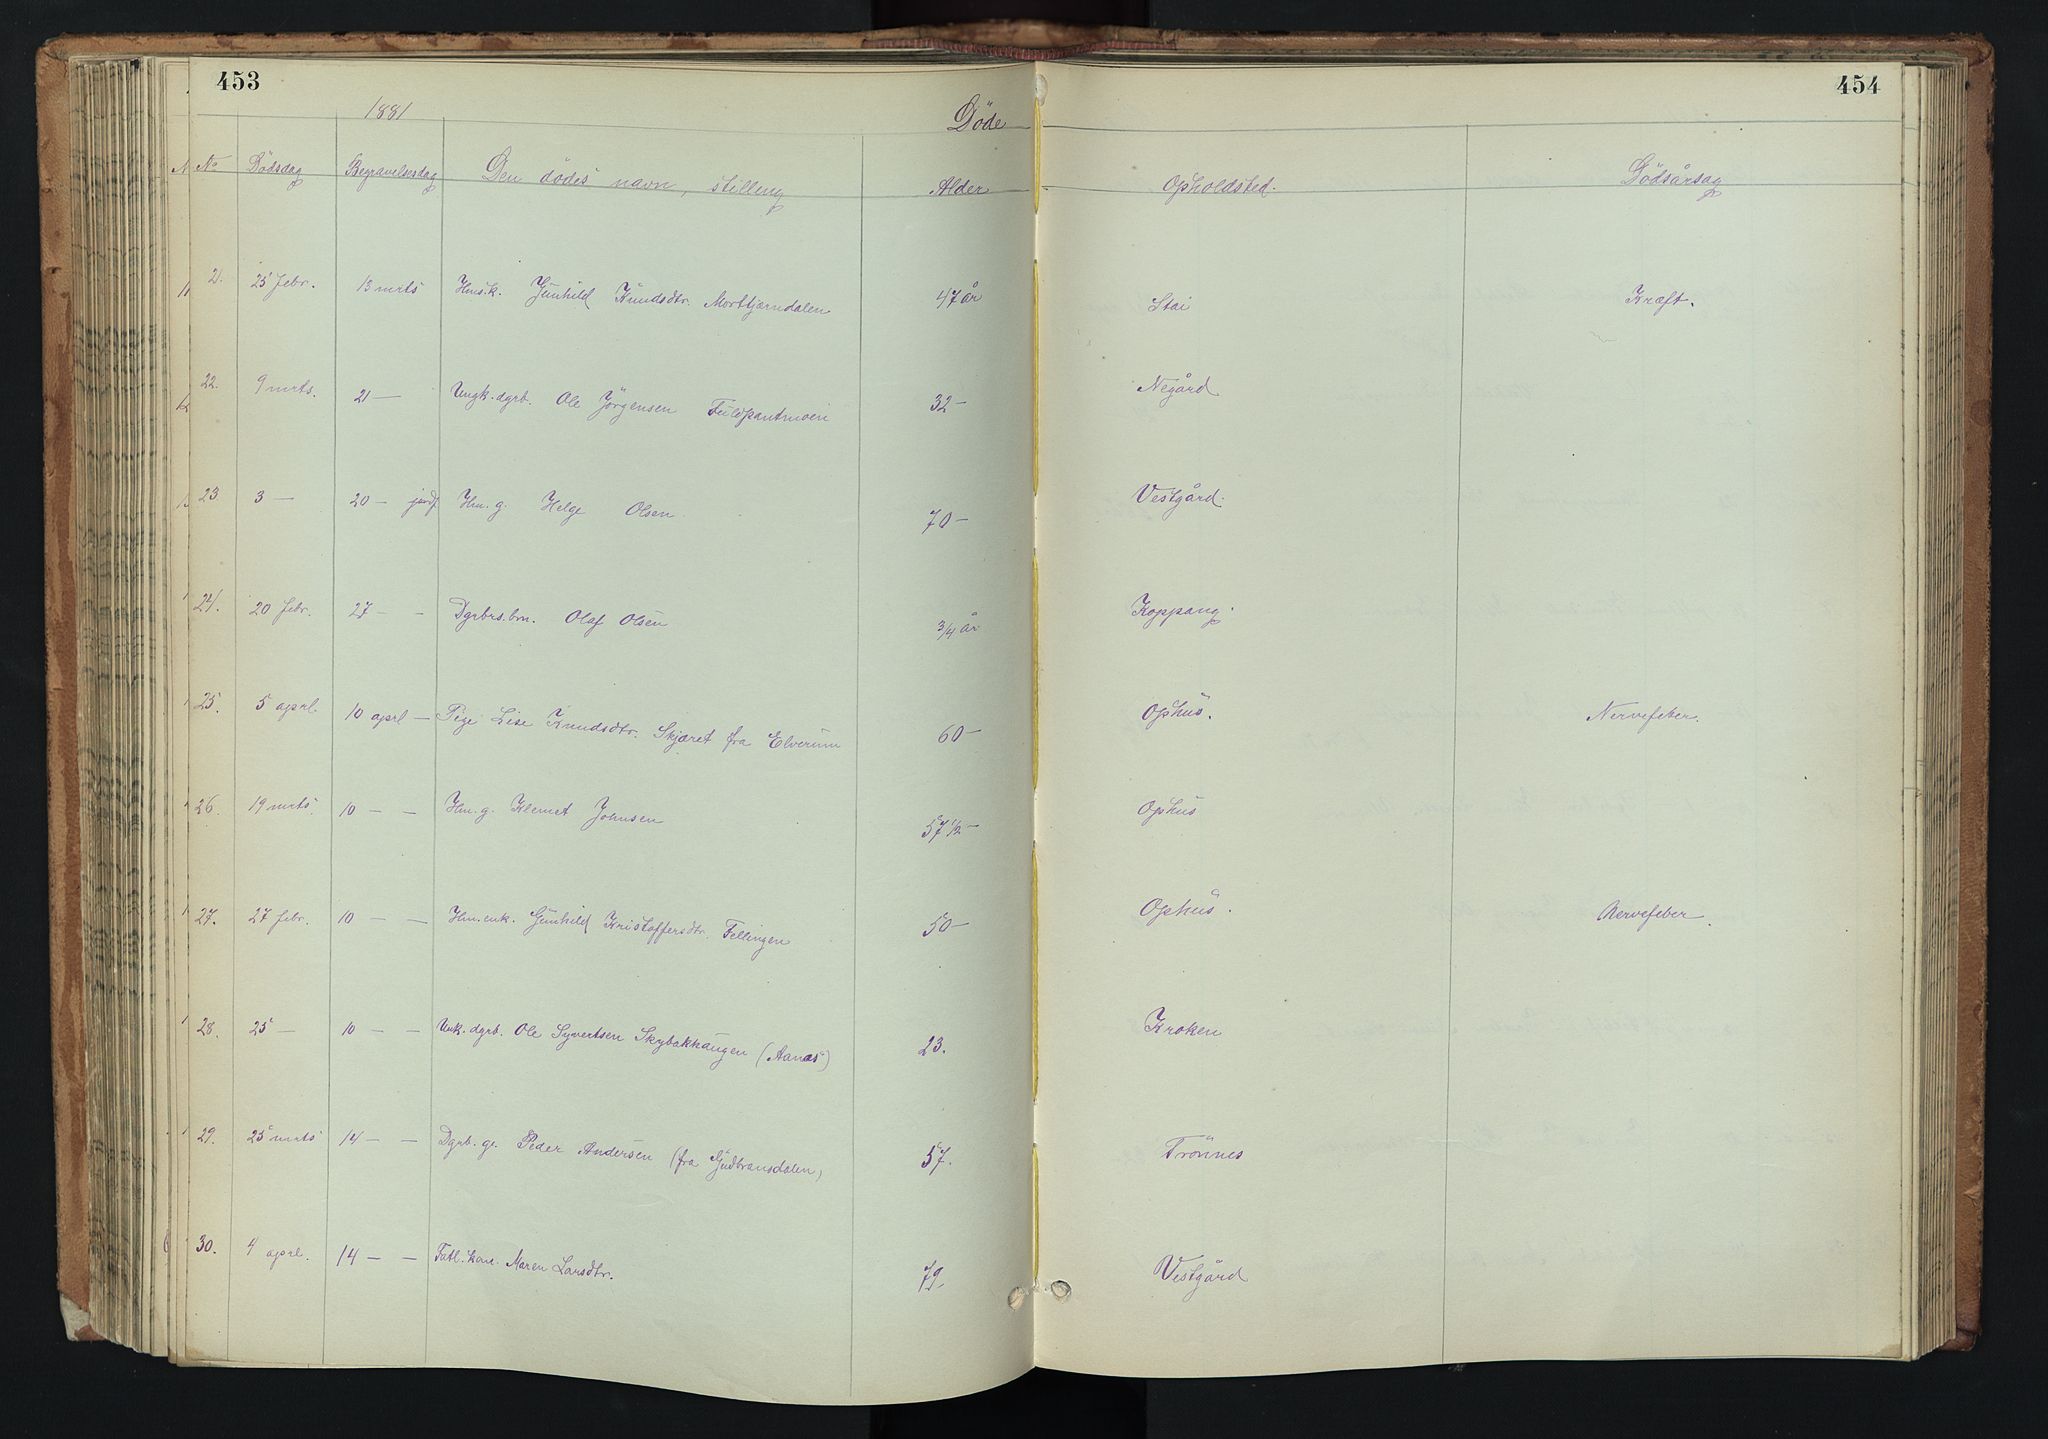 453
454
1881
Döde
No Dödsdag Begravelsesdag Den dödes navn, stilling Alder Opholdsted. Dödsårsag
21. 25 febr. 13 mrts Hms.k. Gunhild Knudsdtr. Morttjærndalen 47 år Stai Kræft.
22. 9 mrts. 21 — Ungk. dgrb. Ole Jörgensen 32 — Negård
23 3 — 20 — Hm. g. Helge Olsen 70 — Vestgård.
24. 20 febr. 27 — — Dgrbrs. brn. Olaf Olsen 3/4 år Koppang.
25. 5 aprl. 10 aprl — Pige Lise Knudsdtr. Skjæret fra Elverum 60 — Ophus. Nervefeber.
26. 19 mrts. 10 — — Hm. g. Klemet Johnsen 57 1/2 — Ophus
27. 27 febr. 10 — — Hm. enk. Gunhild Kristoffersdtr. Fellingen 50 — Ophus. Nervefeber.
28. 25 — 10 — — Unk. dgrb. Ole Syvertsen Skybakhaugen (Aanæs) 23. Kroken
29. 25 mrts 14 — — Dgrb. g. Peder Andersen (fra Gudbransdalen) 57. Trönnes
30. 4 aprl. 14 — — Fatl. kone. Maren Larsdtr. 79. Vestgård